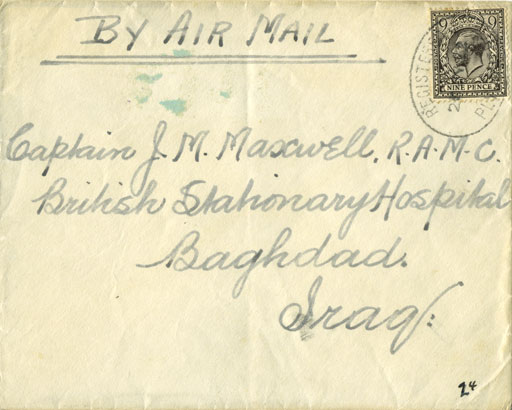 BY AIR MAIL
9 9
NINE PENCE
REGISTERED
Captain J. M. Maxwell, R.A.M.C.
British Stationary Hospital
Baghdad.
Iraq.
24